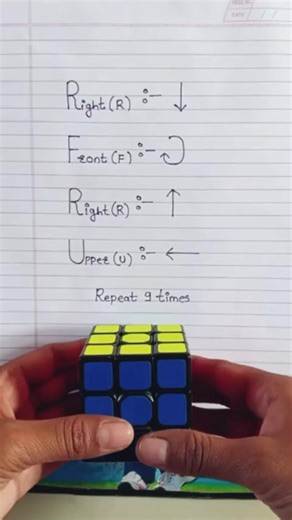 DATE / /
Right (R) :- ↓
Front (F) :-
Right (R) :- ↑
Upper (U) :- ←
Repeat 9 times